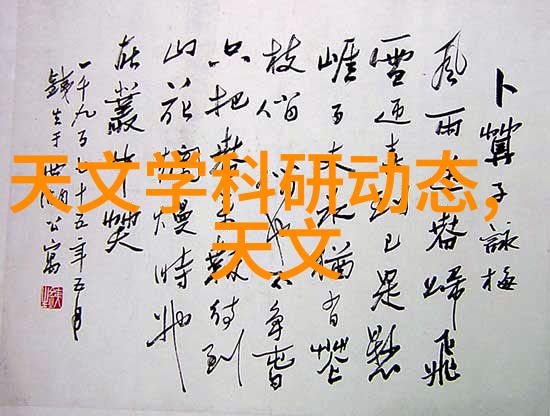 天文学科研动态,
天文
卜算子 詠梅
風雨送春歸飛
雪迎春到已是懸
崖百丈冰猶有花
枝俏俏也不爭春
只把春來報待到
山花爛熳時她
在叢中笑
一千九百七十五年五月
湖公寓